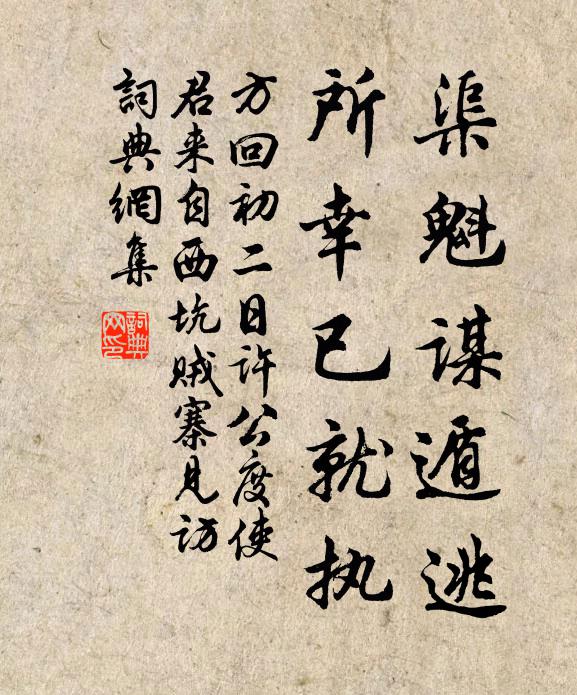 渠魁謀遁逃
所幸已就执
方回初二日許公度使
君来自西坑贼寨見訪
詞典網集
詞典网印